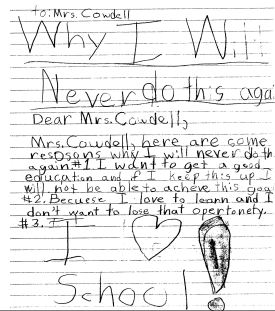 to: Mrs. Cowdell
Why I Will
Never do this agai
Dear Mrs. Cowdell,
Mrs. Cowdell, here are some
resosons why I will never do th
again. #1 I want to get a good
education and if I keep this up I
will not be able to acheve this goa
#2. Becuese I love to learn and I
don't want to lose that opertonety.
#3. I
I ♡
School!